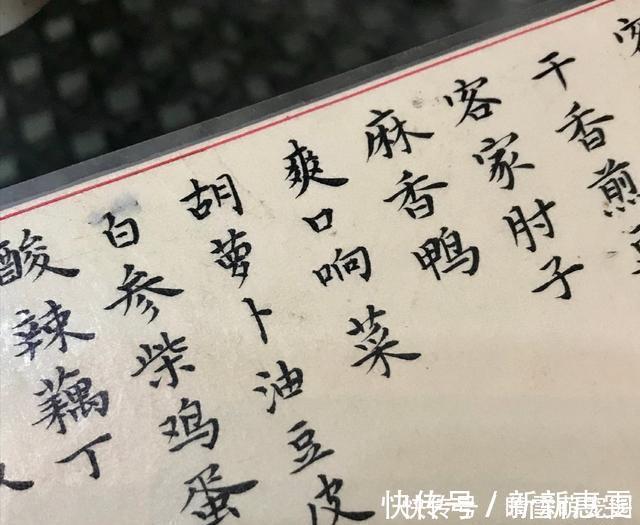 干香煎
客家肘子
麻香鸭
爽口响菜
胡萝卜油豆皮
白参柴鸡蛋
酸辣藕丁
快传号／新新惠